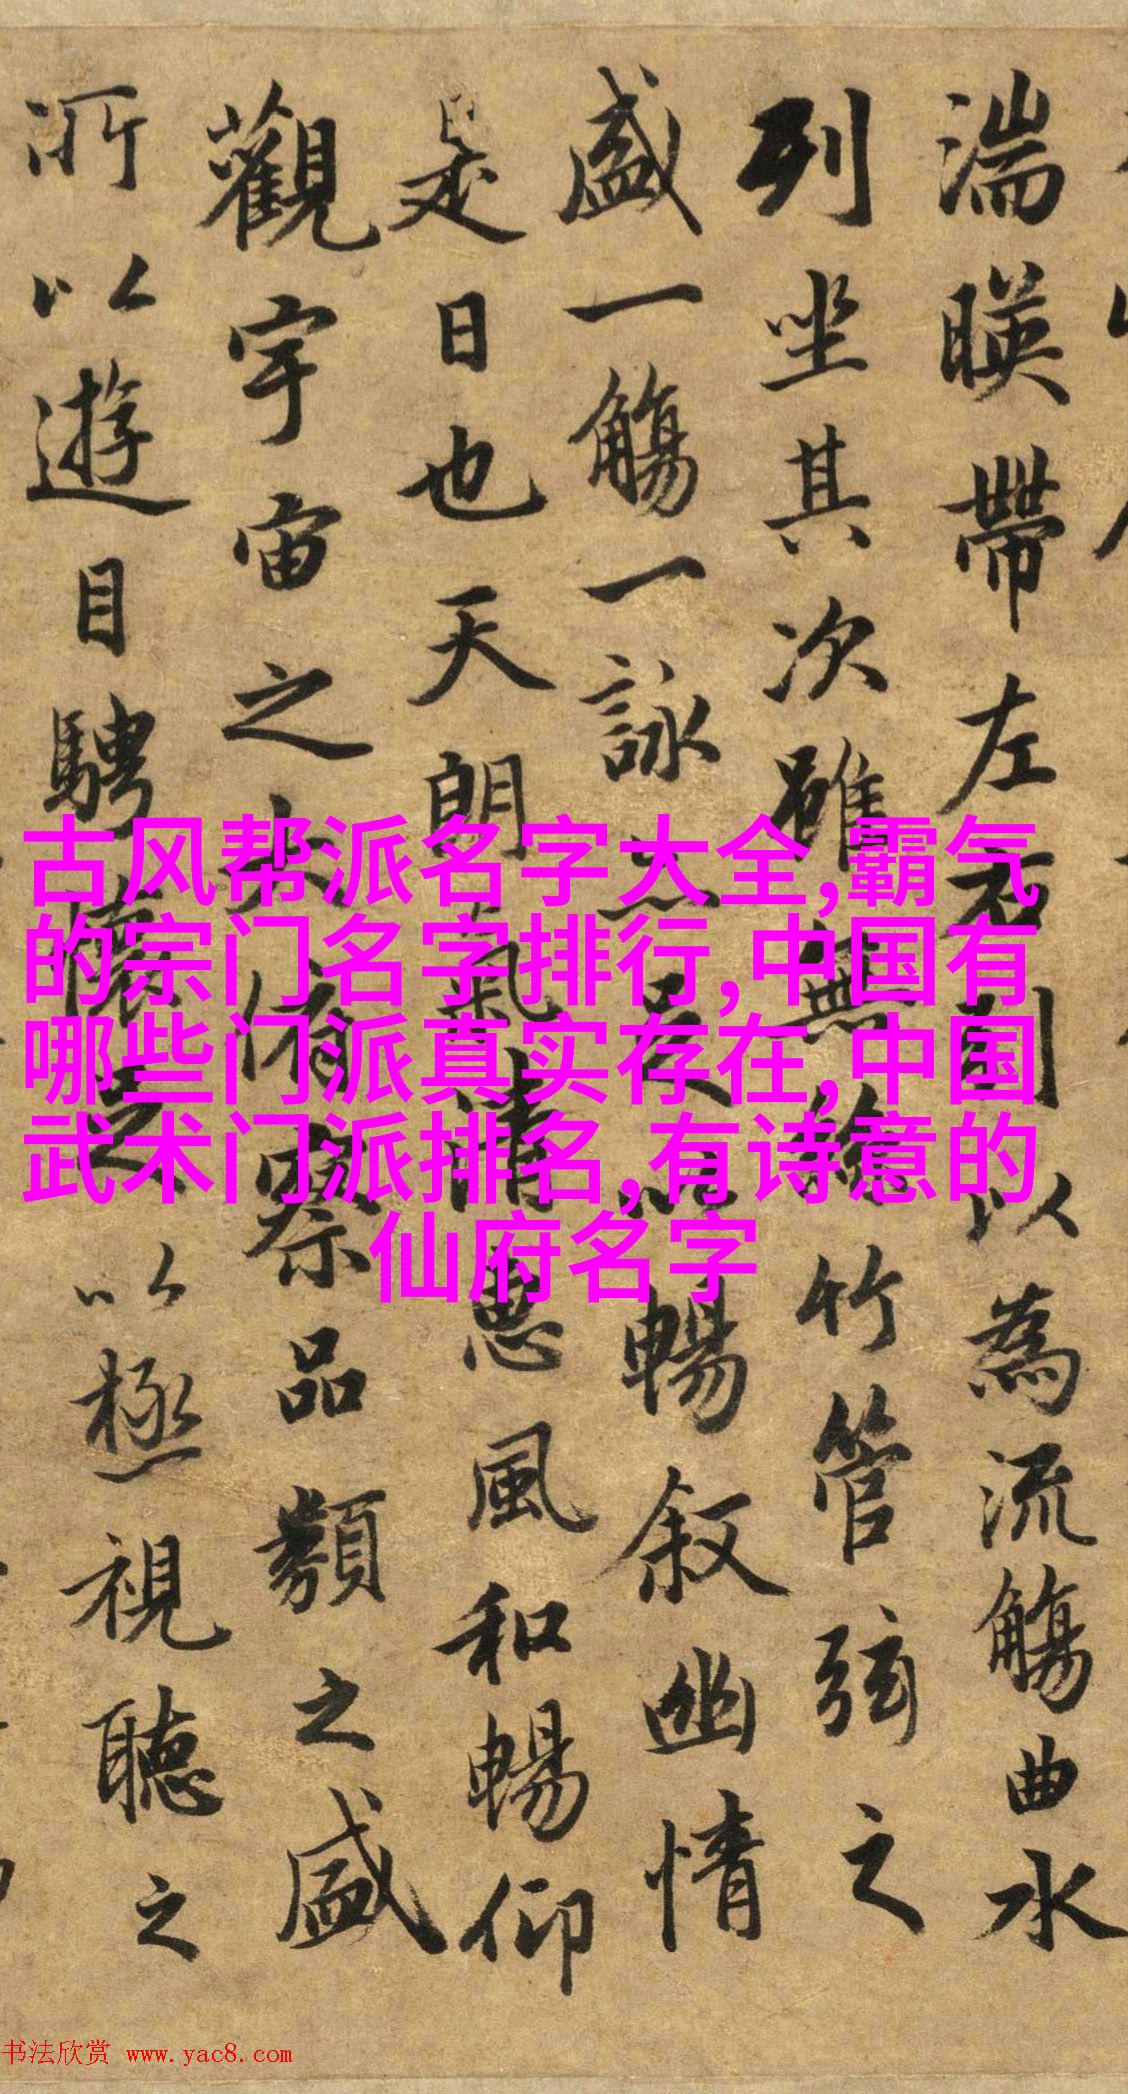 湍暎帶左右引以為流觴曲水
列坐其次雖無絲竹管弦之
盛一觴一詠亦足以暢叙幽情
是日也天朗氣清惠風和暢仰
觀宇宙之大俯察品類之盛
所以遊目騁懷足以極視聽之
古风帮派名字大全,霸气
的宗门名字排行,中国有
哪些门派真实存在,中国
武术门派排名,有诗意的
仙府名字
书法欣赏 www.yac8.com